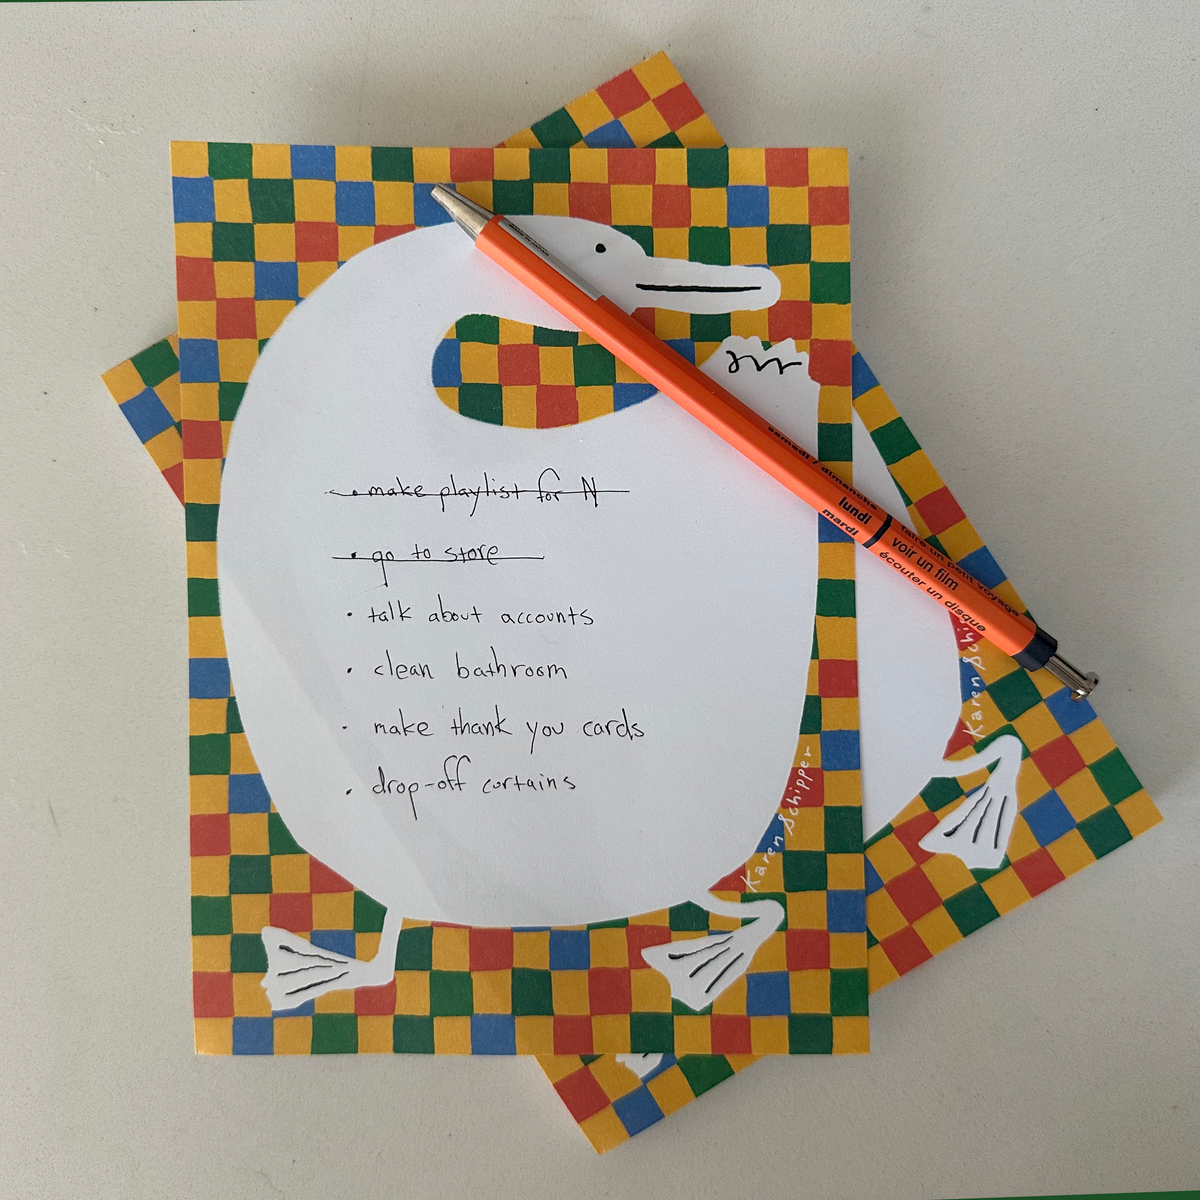 make playlist for N
go to store
• talk about accounts
• clean bathroom
• make thank you cards
• drop-off curtains
samedi / dimanche faire un petit voyage
lundi voir un film
mardi écouter un disque
Karen Schipper
Karen Schi